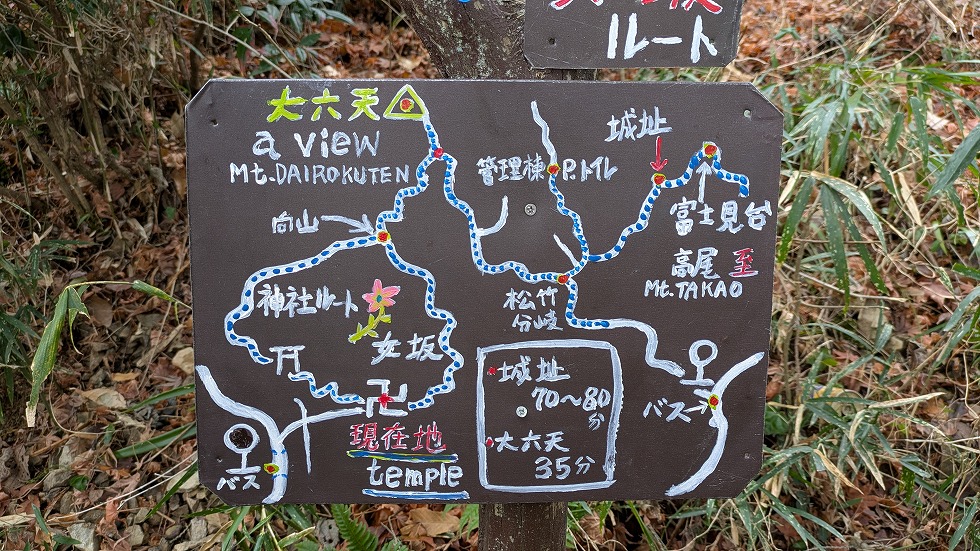 ルート
大六天
a view
Mt.DAIROKUTEN
城址
管理棟
P.トイレ
富士見台
向山
高尾 至
Mt.TAKAO
神社ルート
松竹
分岐
女坂
城址
70～80
分
大六天
35分
バス
卍
現在地
temple
バス